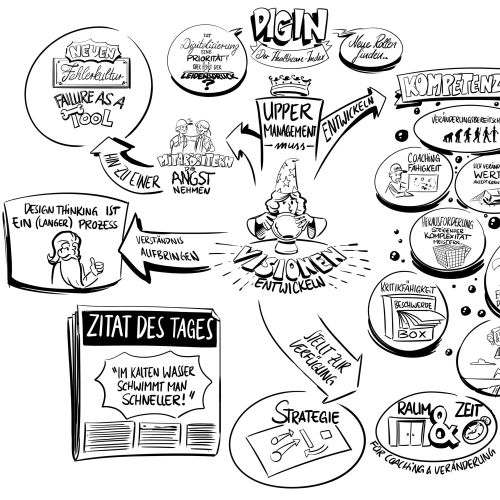 IST
Digitalisierung
eine
PRIORITÄT
ODER IST DER
LEIDENSDRUCK
?
DIGIN
Der Healthcare-Index
Neue Rollen
finden...
NEUEN
Fehlerkultur
FAILURE AS A
TOOL
HIN ZU EINER
MITARBEITERN
DIE
ANGST
NEHMEN
UPPER
MANAGEMENT
muss
ENTWICKELN
KOMPETEN
VERÄNDERUNGSBEREITSCH
COACHING
FÄHIGKEIT
WERT
HERAUSFORDERUNG
STEIGENDER
KOMPLEXITÄT
MEISTERN
KRITIKFÄHIGKEIT
BESCHWERDE
BOX
DESIGN THINKING IST
EIN (LANGER) PROZESS
VERSTÄNDNIS
AUFBRINGEN
VISIONEN
ENTWICKELN
STELLT ZUR
VERFÜGUNG
ZITAT DES TAGES
"IM KALTEN WASSER
SCHWIMMT MAN
SCHNELLER!"
STRATEGIE
RAUM & ZEIT
FÜR COACHING & VERÄNDERUNG